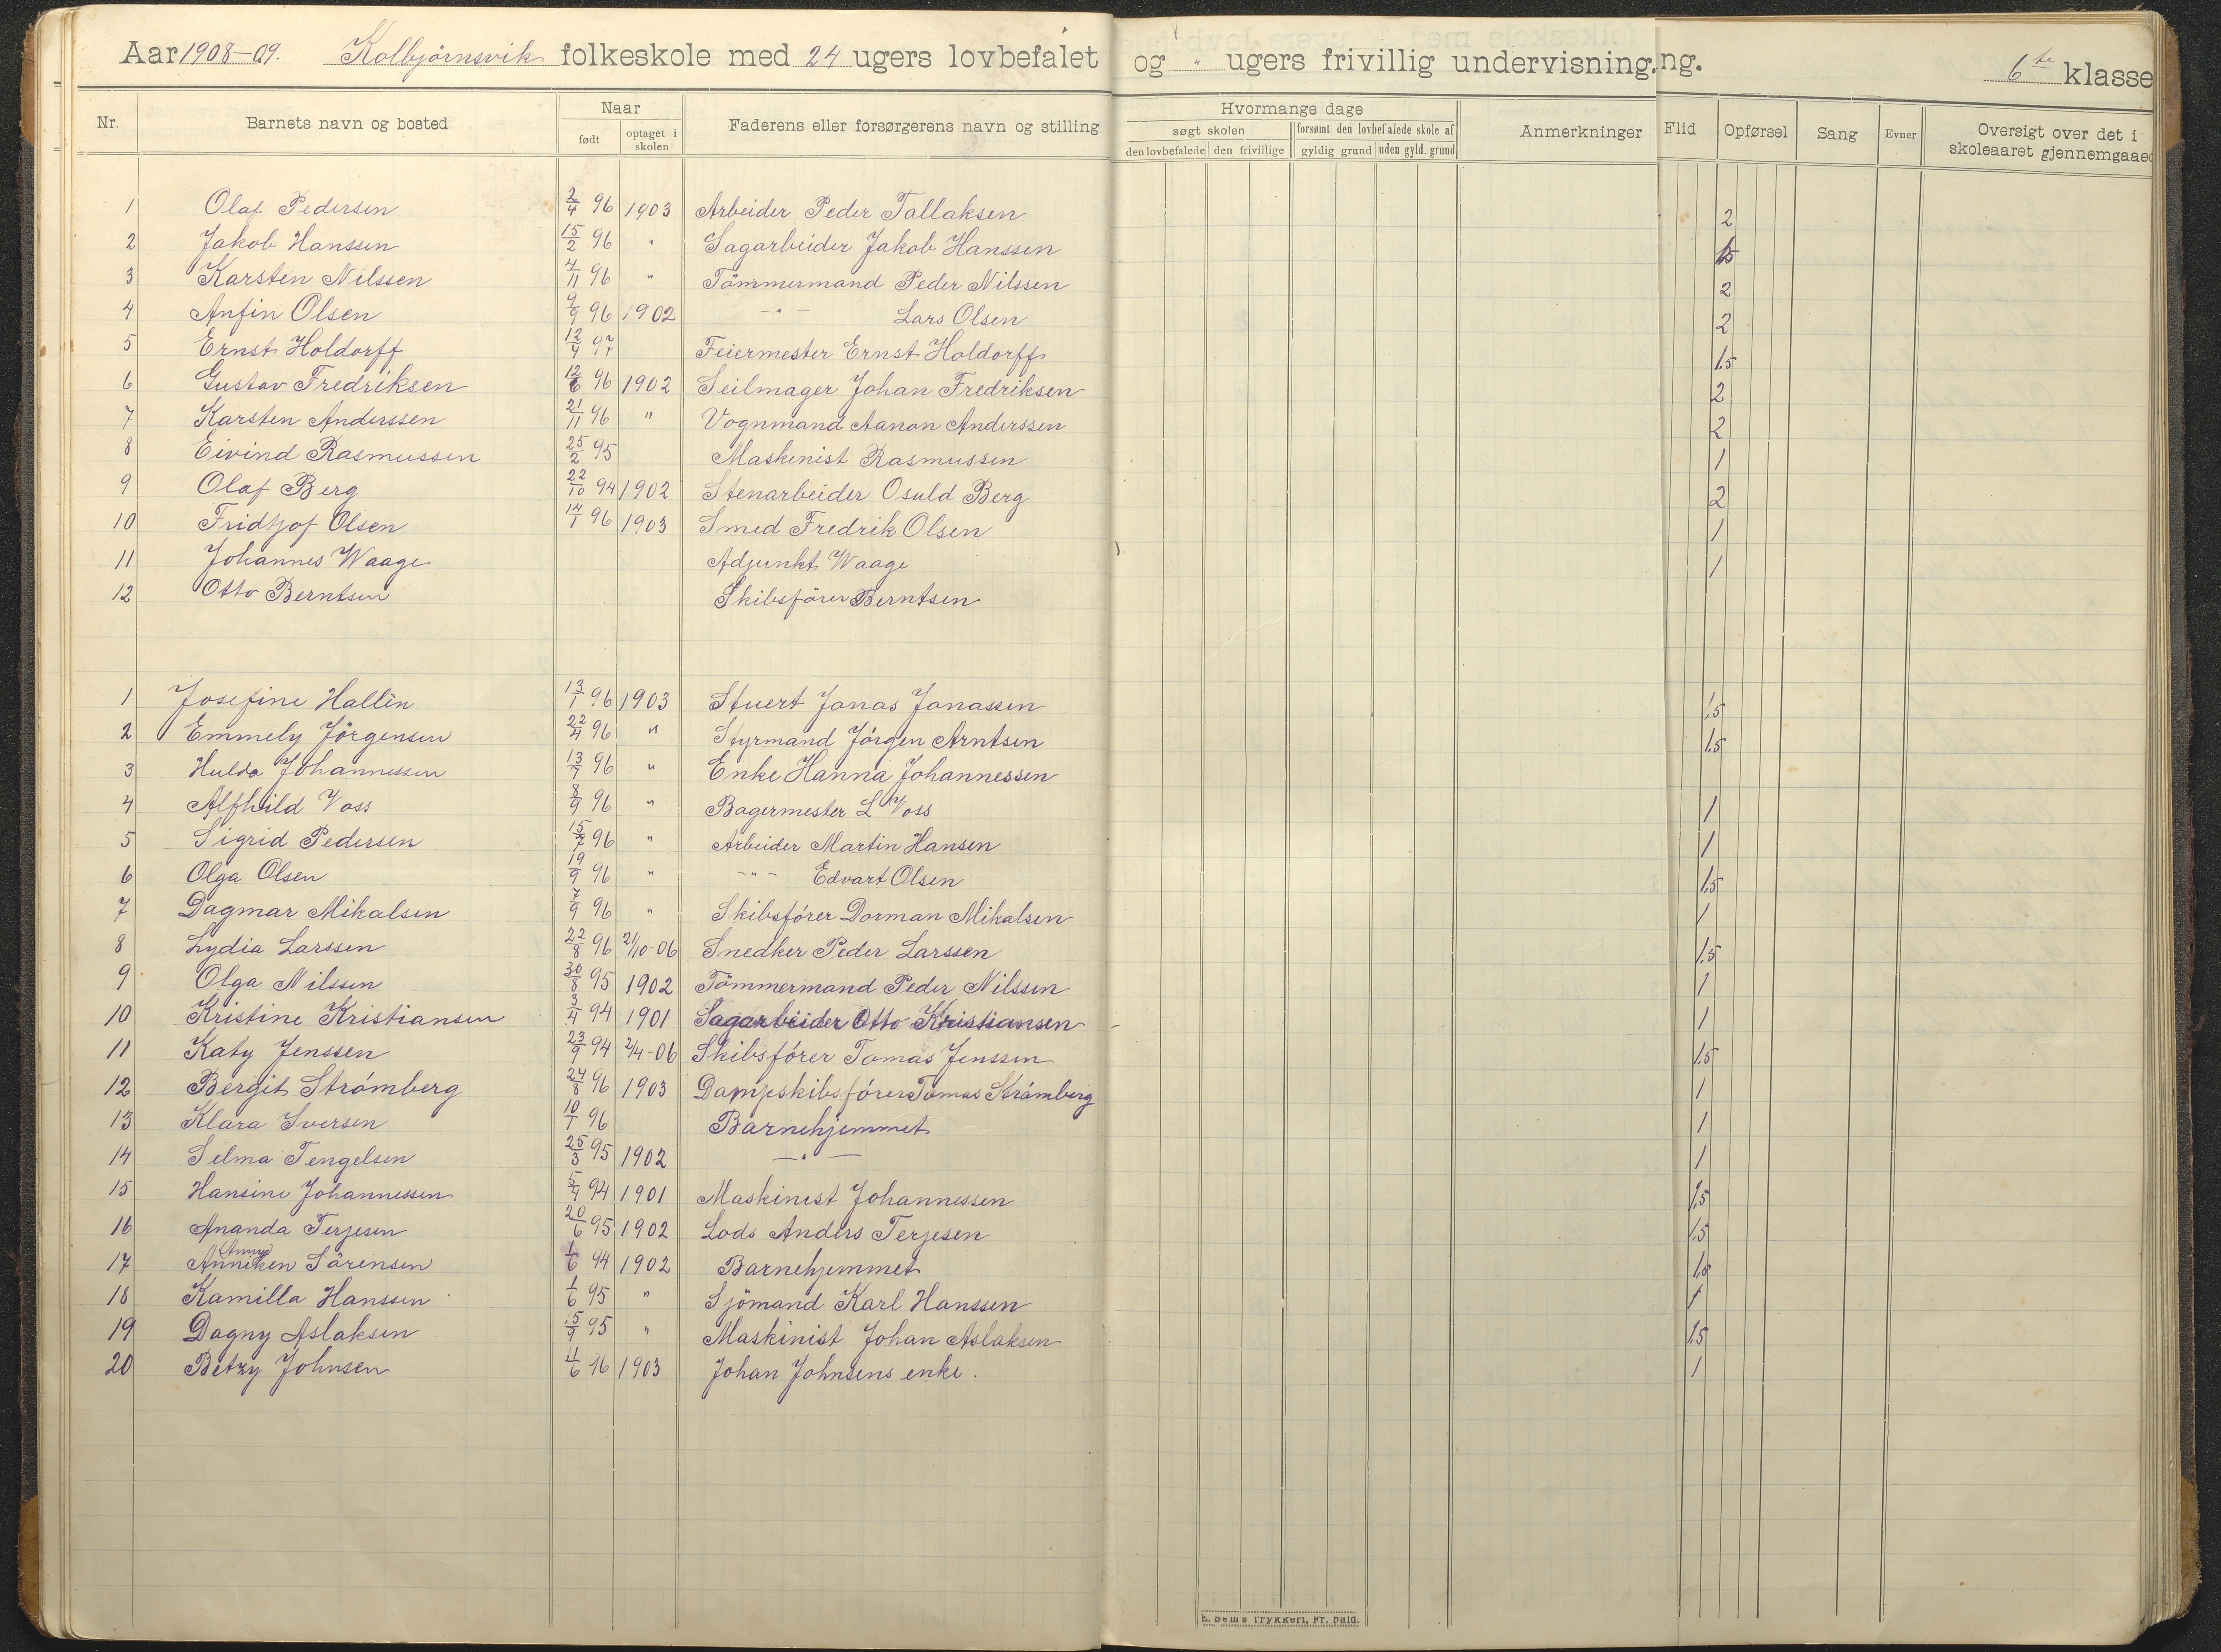 Aar 1908-09. Kolbjörnsvik folkeskole med 24 ugers lovbefalet og " ugers frivillig undervisning. ng. 6te klasse
Nr. Barnets navn og bosted Naar født optaget i skolen Faderens eller forsørgerens navn og stilling Hvormange dage søgt skolen den lovbefalede den frivillige forsømt den lovbefalede skole af gyldig grund uden gyld. grund Anmerkninger Flid Opførsel Sang Evner Oversigt over det i skoleaaret gjennemgaaed
1 Olaf Pedersen 2/4 96 1903 Arbeider Peder Tallaksen 2
2 Jakob Hanssen 15/2 96 " Sagarbeider Jakob Hanssen 1.5
3 Karsten Nilssen 4/11 96 " Tömmermand Peder Nilssen 2
4 Anfin Olsen 9/9 96 1902 -"- Lars Olsen 2
5 Ernst Holdorff 12/4 97 Feiermester Ernst Holdorff 1.5
6 Gustav Fredriksen 12/6 96 1902 Seilmager Johan Fredriksen 2
7 Karsten Anderssen 21/11 96 " Vognmand Aanon Anderssen 2
8 Eivind Rasmussen 25/2 95 Maskinist Rasmussen 1
9 Olaf Berg 22/10 94 1902 Stenarbeider Osuld Berg 2
10 Fridtjof Olsen 14/1 96 1903 Smed Fredrik Olsen 1
11 Johannes Waage Adjunkt Waage 1
12 Otto Berntsen Skibsförer Berntsen
1 Josefine Hallèn 13/1 96 1903 Stuert Jonas Jonassen 1.5
2 Emmely Jörgensen 22/4 96 " Styrmand Jörgen Arntsen 1.5
3 Hulda Johannessen 13/7 96 " Enke Hanna Johannessen
4 Alfhild Voss 8/9 96 " Bagermester L Voss 1
5 Sigrid Pedersen 15/7 96 " Arbeider Martin Hansen 1
6 Olga Olsen 19/9 96 " -"- Edvart Olsen 1.5
7 Dagmar Mikalsen 7/9 96 " Skibsförer Dorman Mikalsen 1
8 Lydia Larssen 22/8 96 21/10-06 Snedker Peder Larssen 1.5
9 Olga Nilssen 30/8 95 1902 Tömmermand Peder Nilssen 1
10 Kristine Kristiansen 3/4 94 1901 Sagarbeider Otto Kristiansen 1
11 Katy Jenssen 23/9 94 2/4-06 Skibsförer Tomas Jenssen 1.5
12 Bergit Strömberg 24/8 96 1903 Dampskibsförer Tomas Strömberg 1
13 Klara Iversen 10/1 96 Barnehjemmet 1
14 Selma Tengelsen 25/3 95 1902 -"- 1
15 Hansine Johannessen 5/9 94 1901 Maskinist Johannessen 1.5
16 Ananda Terjesen 20/6 95 1902 Lods Anders Terjesen 1.5
(Anny)
17 Anneken Sörensen 1/6 94 1902 Barnehjemmet 1.5
18 Kamilla Hanssen 1/6 95 " Sjömand Karl Hanssen 1
19 Dagny Aslaksen 15/9 95 " Maskinist Johan Aslaksen 1.5
20 Betzy Johnsen 4/6 96 1903 Johan Johnsens enke. 1
E. Sem's Trykkeri, Fr.hald.